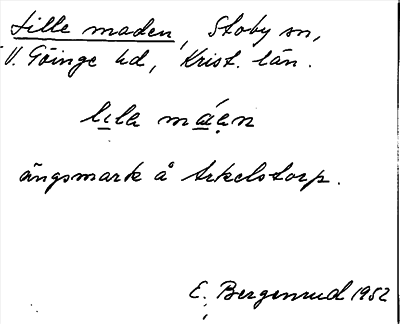 Lille maden, Stoby sn,
V. Göinge hd, Krist. län.
lịla máẹn
ängsmark å Arkelstorp.
E. Bergenrud 1952